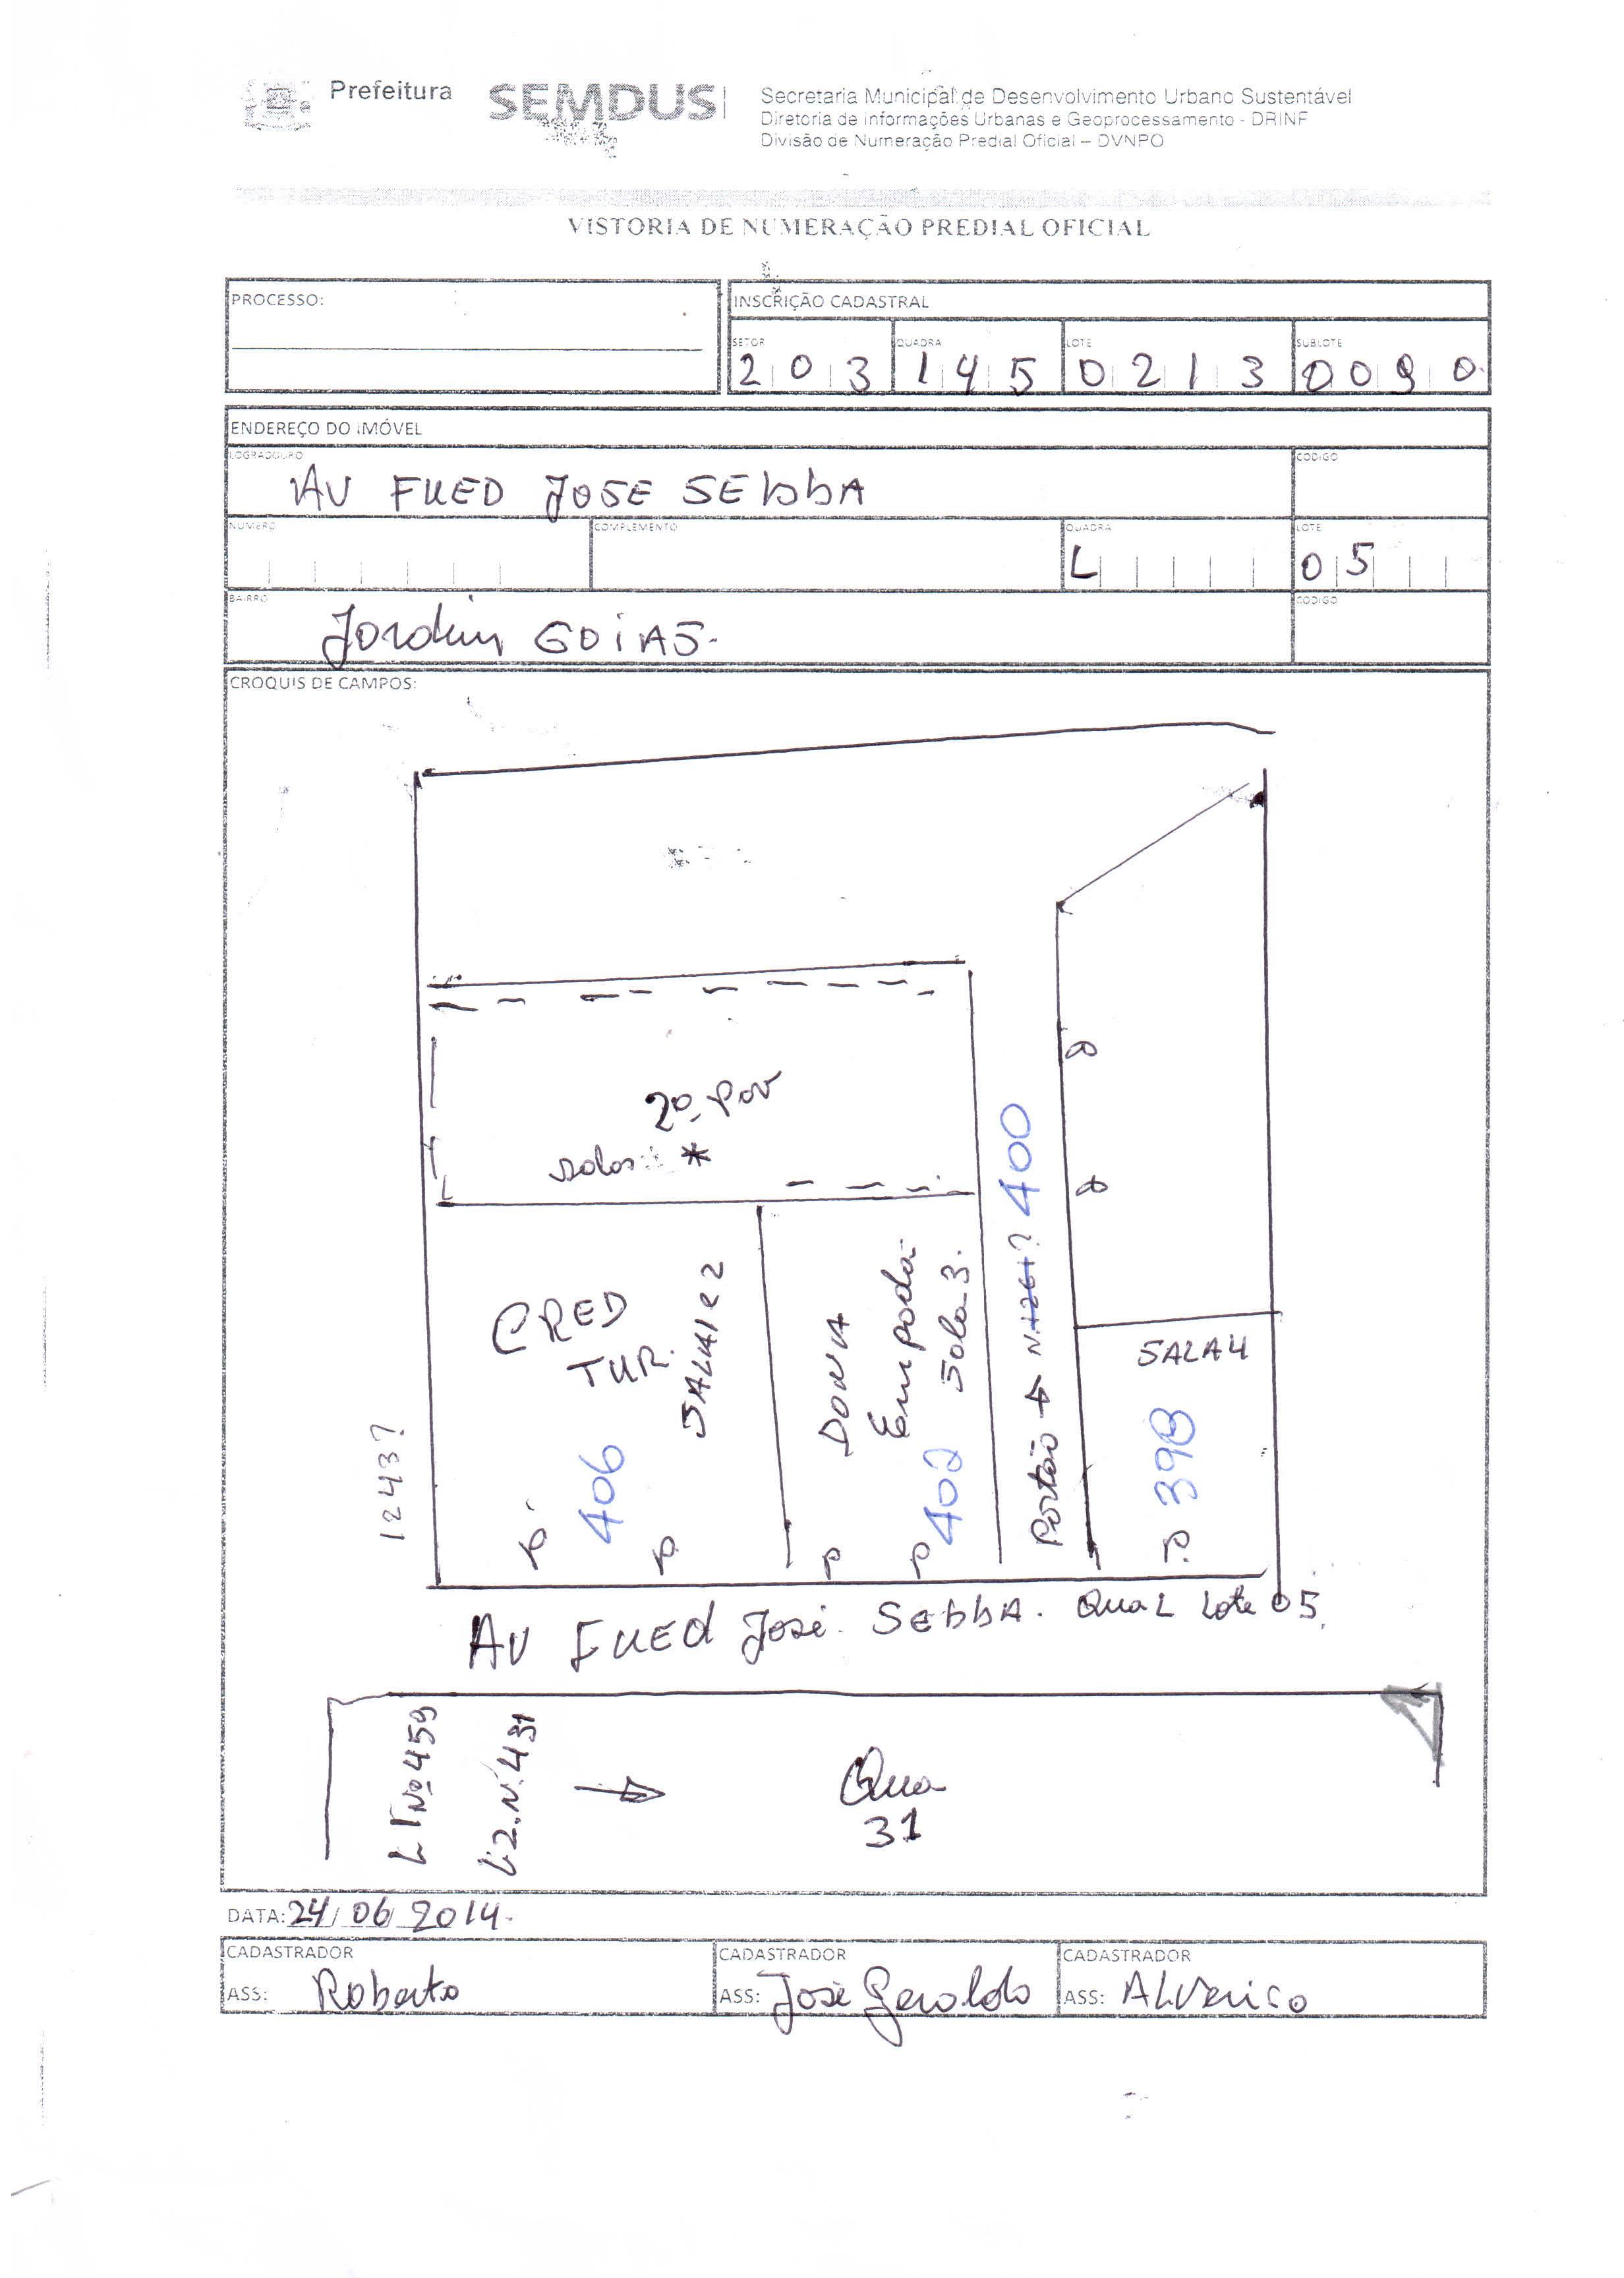 Prefeitura
SEMDUS
Secretaria Municipal de Desenvolvimento Urbano Sustentável
Diretoria de Informações Urbanas e Geoprocessamento - DRINF
Divisão de Numeração Predial Oficial – DVNPO
VISTORIA DE NUMERAÇÃO PREDIAL OFICIAL
PROCESSO:
INSCRIÇÃO CADASTRAL
SETOR QUADRA LOTE SUBLOTE
2 0 3 1 4 5 0 2 1 3 0 0 9 0
ENDEREÇO DO IMÓVEL
LOGRADOURO CODIGO
AV FUED JOSE SEbbA
NUMERO COMPLEMENTO QUADRA LOTE
L 0 5
BAIRRO CODIGO
Jardim GOIAS.
CROQUIS DE CAMPOS:
2º Pav
salas *
CRED
TUR.
SALA 1 e 2
406
DONA
Empada
Sala 3.
402
Portão N. 1261? 400
SALA 4
398
1243?
AV FUED José. SebbA. Qua L Lote 05.
L 1 Nº 459
L.2. N. 431
Qua
31
DATA: 24/06/2014.
CADASTRADOR CADASTRADOR CADASTRADOR
ASS: Roberto ASS: José Geraldo ASS: ALVerico